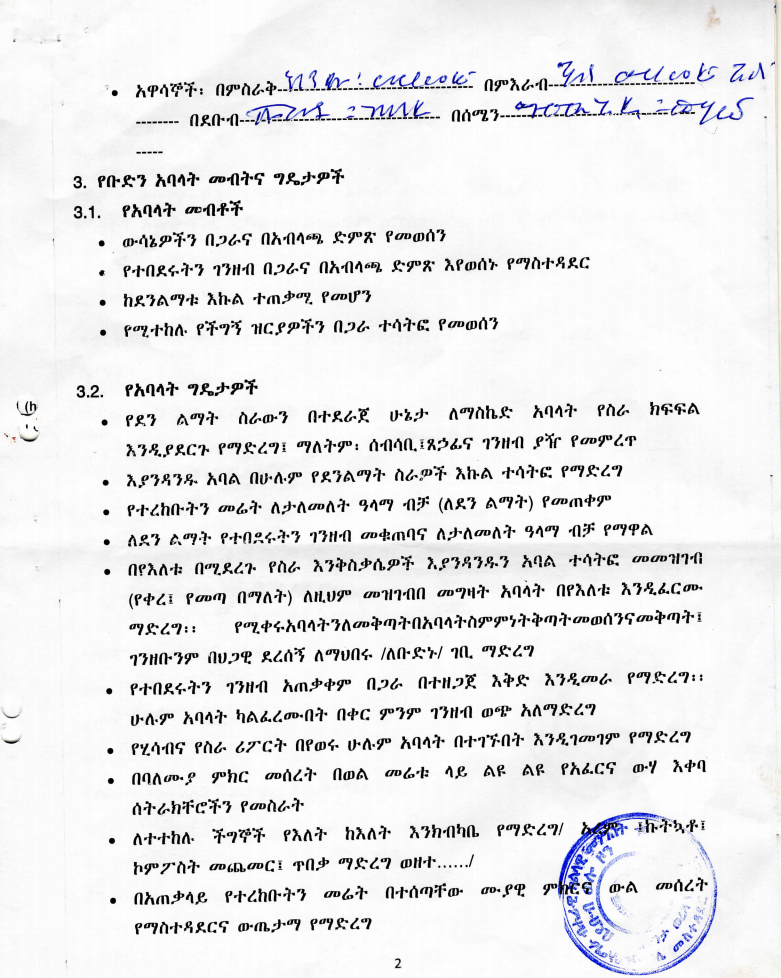 • አዋሳኞች፡ በምስራቅ-------------------------------- በምእራብ------------------------
-------- በደቡብ-------------------------------- በሰሜን--------------------------------
-----
3. የቡድን አባላት መብትና ግዴታዎች
3.1. የአባላት መብቶች
• ውሳኔዎችን በጋራና በአብላጫ ድምጽ የመወሰን
• የተበደሩትን ገንዘብ በጋራና በአብላጫ ድምጽ እየወሰኑ የማስተዳደር
• ከደንልማቱ እኩል ተጠቃሚ የመሆን
• የሚተከሉ የችግኝ ዝርያዎችን በጋራ ተሳትፎ የመወሰን
3.2. የአባላት ግዴታዎች
• የደን ልማት ስራውን በተደራጀ ሁኔታ ለማስኬድ አባላት የስራ ክፍፍል
እንዲያደርጉ የማድረግ፤ ማለትም፡ ሰብሳቢ፤ጸኃፊና ገንዘብ ያዥ የመምረጥ
• እያንዳንዱ አባል በሁሉም የደንልማት ስራዎች እኩል ተሳትፎ የማድረግ
• የተረከቡትን መሬት ለታለመለት ዓላማ ብቻ (ለደን ልማት) የመጠቀም
• ለደን ልማት የተበደሩትን ገንዘብ መቁጠባና ለታለመለት ዓላማ ብቻ የማዋል
• በየእለቱ በሚደረጉ የስራ እንቅስቃሴዎች እያንዳንዱን አባል ተሳትፎ መመዝገብ
(የቀረ፤ የመጣ በማለት) ለዚህም መዝገብበ መግዛት አባላት በየእለቱ እንዲፈርሙ
ማድረግ፡፡ የሚቀሩአባላትንለመቅጣትበአባላትስምምነትቅጣትመወሰንናመቅጣት፤
ገንዘቡንም በህጋዊ ደረሰኝ ለማህበሩ /ለቡድኑ/ ገቢ ማድረግ
• የተበደሩትን ገንዘብ አጠቃቀም በጋራ በተዘጋጀ እቅድ እንዲመራ የማድረግ፡፡
ሁሉም አባላት ካልፈረሙበት በቀር ምንም ገንዘብ ወጭ አለማድረግ
• የሂሳብና የስራ ሪፖርት በየወሩ ሁሉም አባላት በተገኙበት እንዲገመገም የማድረግ
• በባለሙያ ምክር መሰረት በወል መሬቱ ላይ ልዩ ልዩ የአፈርና ውሃ እቀባ
ሰትራክቸሮችን የመስራት
• ለተተከሉ ችግኞች የእለት ከእለት እንክብካቤ የማድረግ/ አረም ፤ኩትኳቶ፤
ኮምፖስት መጨመር፤ ጥበቃ ማድረግ ወዘተ....../
• በአጠቃላይ የተረከቡትን መሬት በተሰጣቸው ሙያዊ ምክርና ውል መሰረት
የማስተዳደርና ውጤታማ የማድረግ
2